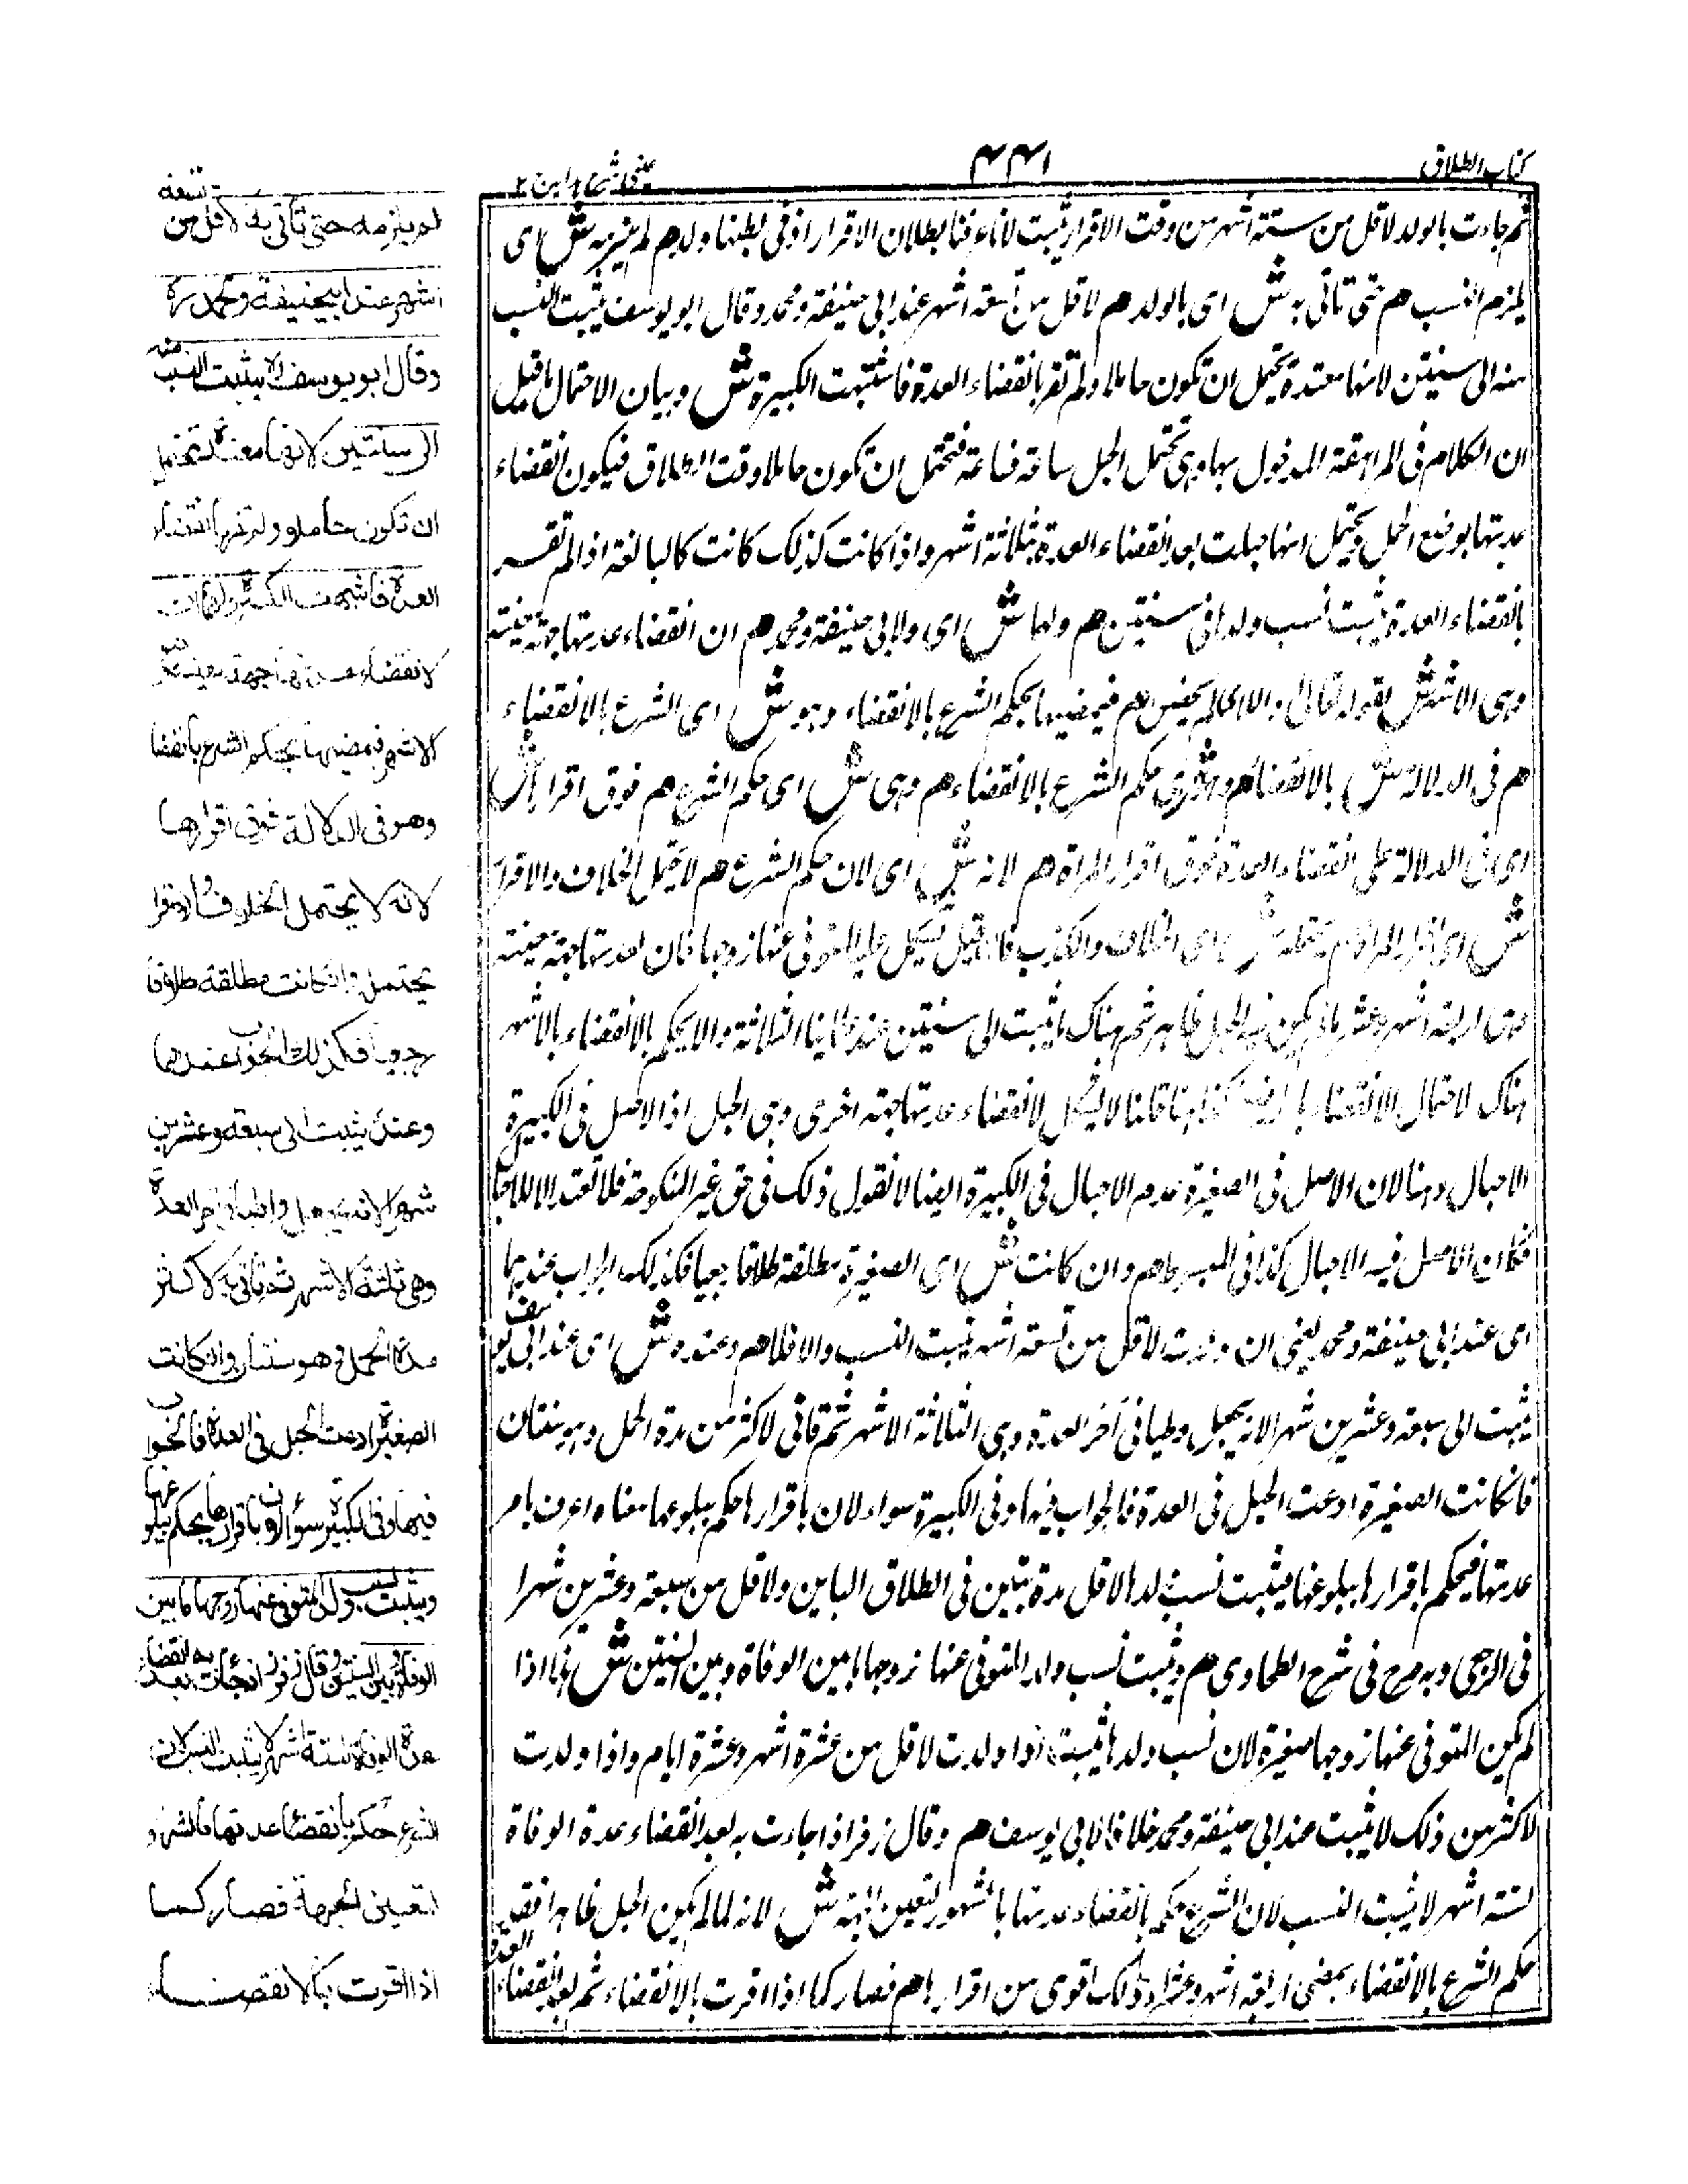 كتاب الطلاق
۴۴۱
ثم جاءت بالولد لاقل من ستة اشهر من وقت الاقرار يثبت لانا عرفنا بطلان الاقرار اذ فى بطنها ولد هم لم يلزمه ش اى
يلزم النسب هم حتى تاتى به ش اى بالولد هم لاقل من تسعة اشهر عند ابى حنيفة ومحمد وقال ابو يوسف يثبت النسب
منه الى سنتين لانها معتدة يحتمل ان تكون حاملا ولم تقر بانقضاء العدة فاشبهت الكبيرة ش وبيان الاحتمال ما قيل
ان الكلام فى المراهقة المدخول بها وهى تحتمل الحبل ساعة فساعة فتحتمل ان تكون حاملا وقت الطلاق فيكون انقضاء
عدتها بوضع الحمل ويحتمل انها حبلت بعد انقضاء العدة بثلاثة اشهر واذا كانت كذلك كانت كالبالغة اذا لم تقر
بانقضاء العدة يثبت نسب ولدها فى سنتين هم ولهما ش اى ولابى حنيفة ومحمد هم ان انقضاء عدتها جهة معينة
وهى الاشهر ش لقوله تعالى واللائى لم يحضن هم فبمضيها يحكم الشرع بالانقضاء وهو ش اى الشرع بالانقضاء
هم فى الدلالة ش بالانقضاء هم وهو ش اى حكم الشرع بالانقضاء هم وهى ش اى حكم الشرع هم فوق اقرارها ش
اى فى الدلالة على انقضاء العدة فوق اقرار المراة هم لانه ش اى لان حكم الشرع هم لا يحتمل الخلاف والاقرار
ش اى اقرار المراة هم يحتمله ش اى الخلاف والكذب فان قيل يشكل على المتوفى عنها زوجها فان لعدتها جهة معينة
وهى اربعة اشهر وعشر مالم يكن الحبل ظاهر ثم هناك يثبت الى سنتين عند علماينا الثلاثة والا يحكم بالانقضاء بالاشهر
هناك لاحتمال الانقضاء بالوضع كذا هنا قلنا لا يشكل لانقضاء عدتها جهة اخرى وهى الحبل اذ الاصل فى الكبيرة
الاحبال وهنا لان الاصل فى الصغيرة عدم الاحبال فى الكبيرة ايضا لا نقول ذلك فى حق غير المنكوحة فلا تعقد الا للاحبال
فكان الاصل فيه الاحبال كذا فى المبسوط هم وان كانت ش اى الصغيرة مطلقة طلاقا رجعيا فكذلك الجواب عندهما
اى عند ابى حنيفة ومحمد يعنى ان ولدت لاقل من تسعة اشهر يثبت النسب والا فلا هم وعنده ش اى عند ابى يوسف
يثبت الى سبعة وعشرين شهرا لانه يجعل وطيا فى آخر العدة وهى الثلاثة الاشهر ثم تاتى لاكثر من مدة الحمل وهو سنتان
فان كانت الصغيرة ادعت الحبل فى العدة فالجواب فيها وفى الكبيرة سواء لان باقرارها حكم ببلوغها معناه اعرف بامر
عدتها فيحكم باقرارها ببلوغها فيثبت نسب ولدها لاقل مدة سنتين فى الطلاق الباين ولاقل من سبعة وعشرين شهرا
فى الرجعى وبه صرح فى شرح الطحاوى هم ويثبت نسب ولد المتوفى عنها زوجها ما بين الوفاة وبين السنتين ش هذا اذا
لم يكن المتوفى عنها زوجها صغيرة لان نسب ولدها يثبت اذا ولدت لاقل من عشرة اشهر وعشرة ايام واذا ولدت
لاكثر من ذلك لا يثبت عند ابى حنيفة ومحمد خلافا لابى يوسف هم وقال زفر اذا جاءت به بعد انقضاء عدة الوفاة
لستة اشهر لا يثبت النسب لان الشرع حكم بانقضاء عدتها بالشهور لتعين الجهة ش لانه لما لم يكن الحبل ظاهرا فقد
حكم الشرع بالانقضاء بمضى اربعة اشهر وعشر وذلك اقوى من اقرارها هم فصار كما اذا اقرت بالانقضاء ثم بعد انقضاء العدة
لم يلزمه حتى تأتى به لاقل من تسعة
اشهر عند ابيحنيفة ومحمد رح
وقال ابو يوسف يثبت النسب منه
الى سنتين لانها معتدة تحتمل
ان تكون حاملا ولم تقر بانقضاء
العدة فاشبهت الكبيرة ولهما ان
لانقضاء عدتها جهة معينة وهى
الاشهر فبمضيها يحكم الشرع بانقضا
وهو فى الدلالة فوق اقرارها
لانه لا يحتمل الخلاف والاقرار
يحتمل وان كانت مطلقة طلاقا
رجعيا فكذلك الجواب عندهما
وعنده يثبت الى سبعة وعشرين
شهرا لانه يجعل واطيا فى اخر العدة
وهى ثلثة الاشهر ثم تاتى به لاكثر
مدة الحمل وهو سنتان وان كانت
الصغيرة ادعت الحبل فى العدة فالجواب
فيها وفى الكبيرة سواء لان باقرارها يحكم ببلوغها
ويثبت نسب ولد المتوفى عنها زوجها ما بين
الوفاة وبين السنتين وقال زفر اذا جاءت به بعد انقضاء
عدة الوفاة لستة اشهر لا يثبت النسب لان
الشرع حكم بانقضاء عدتها بالشهور
لتعين الجهة فصار كما
اذا اقرت بالانقضاء